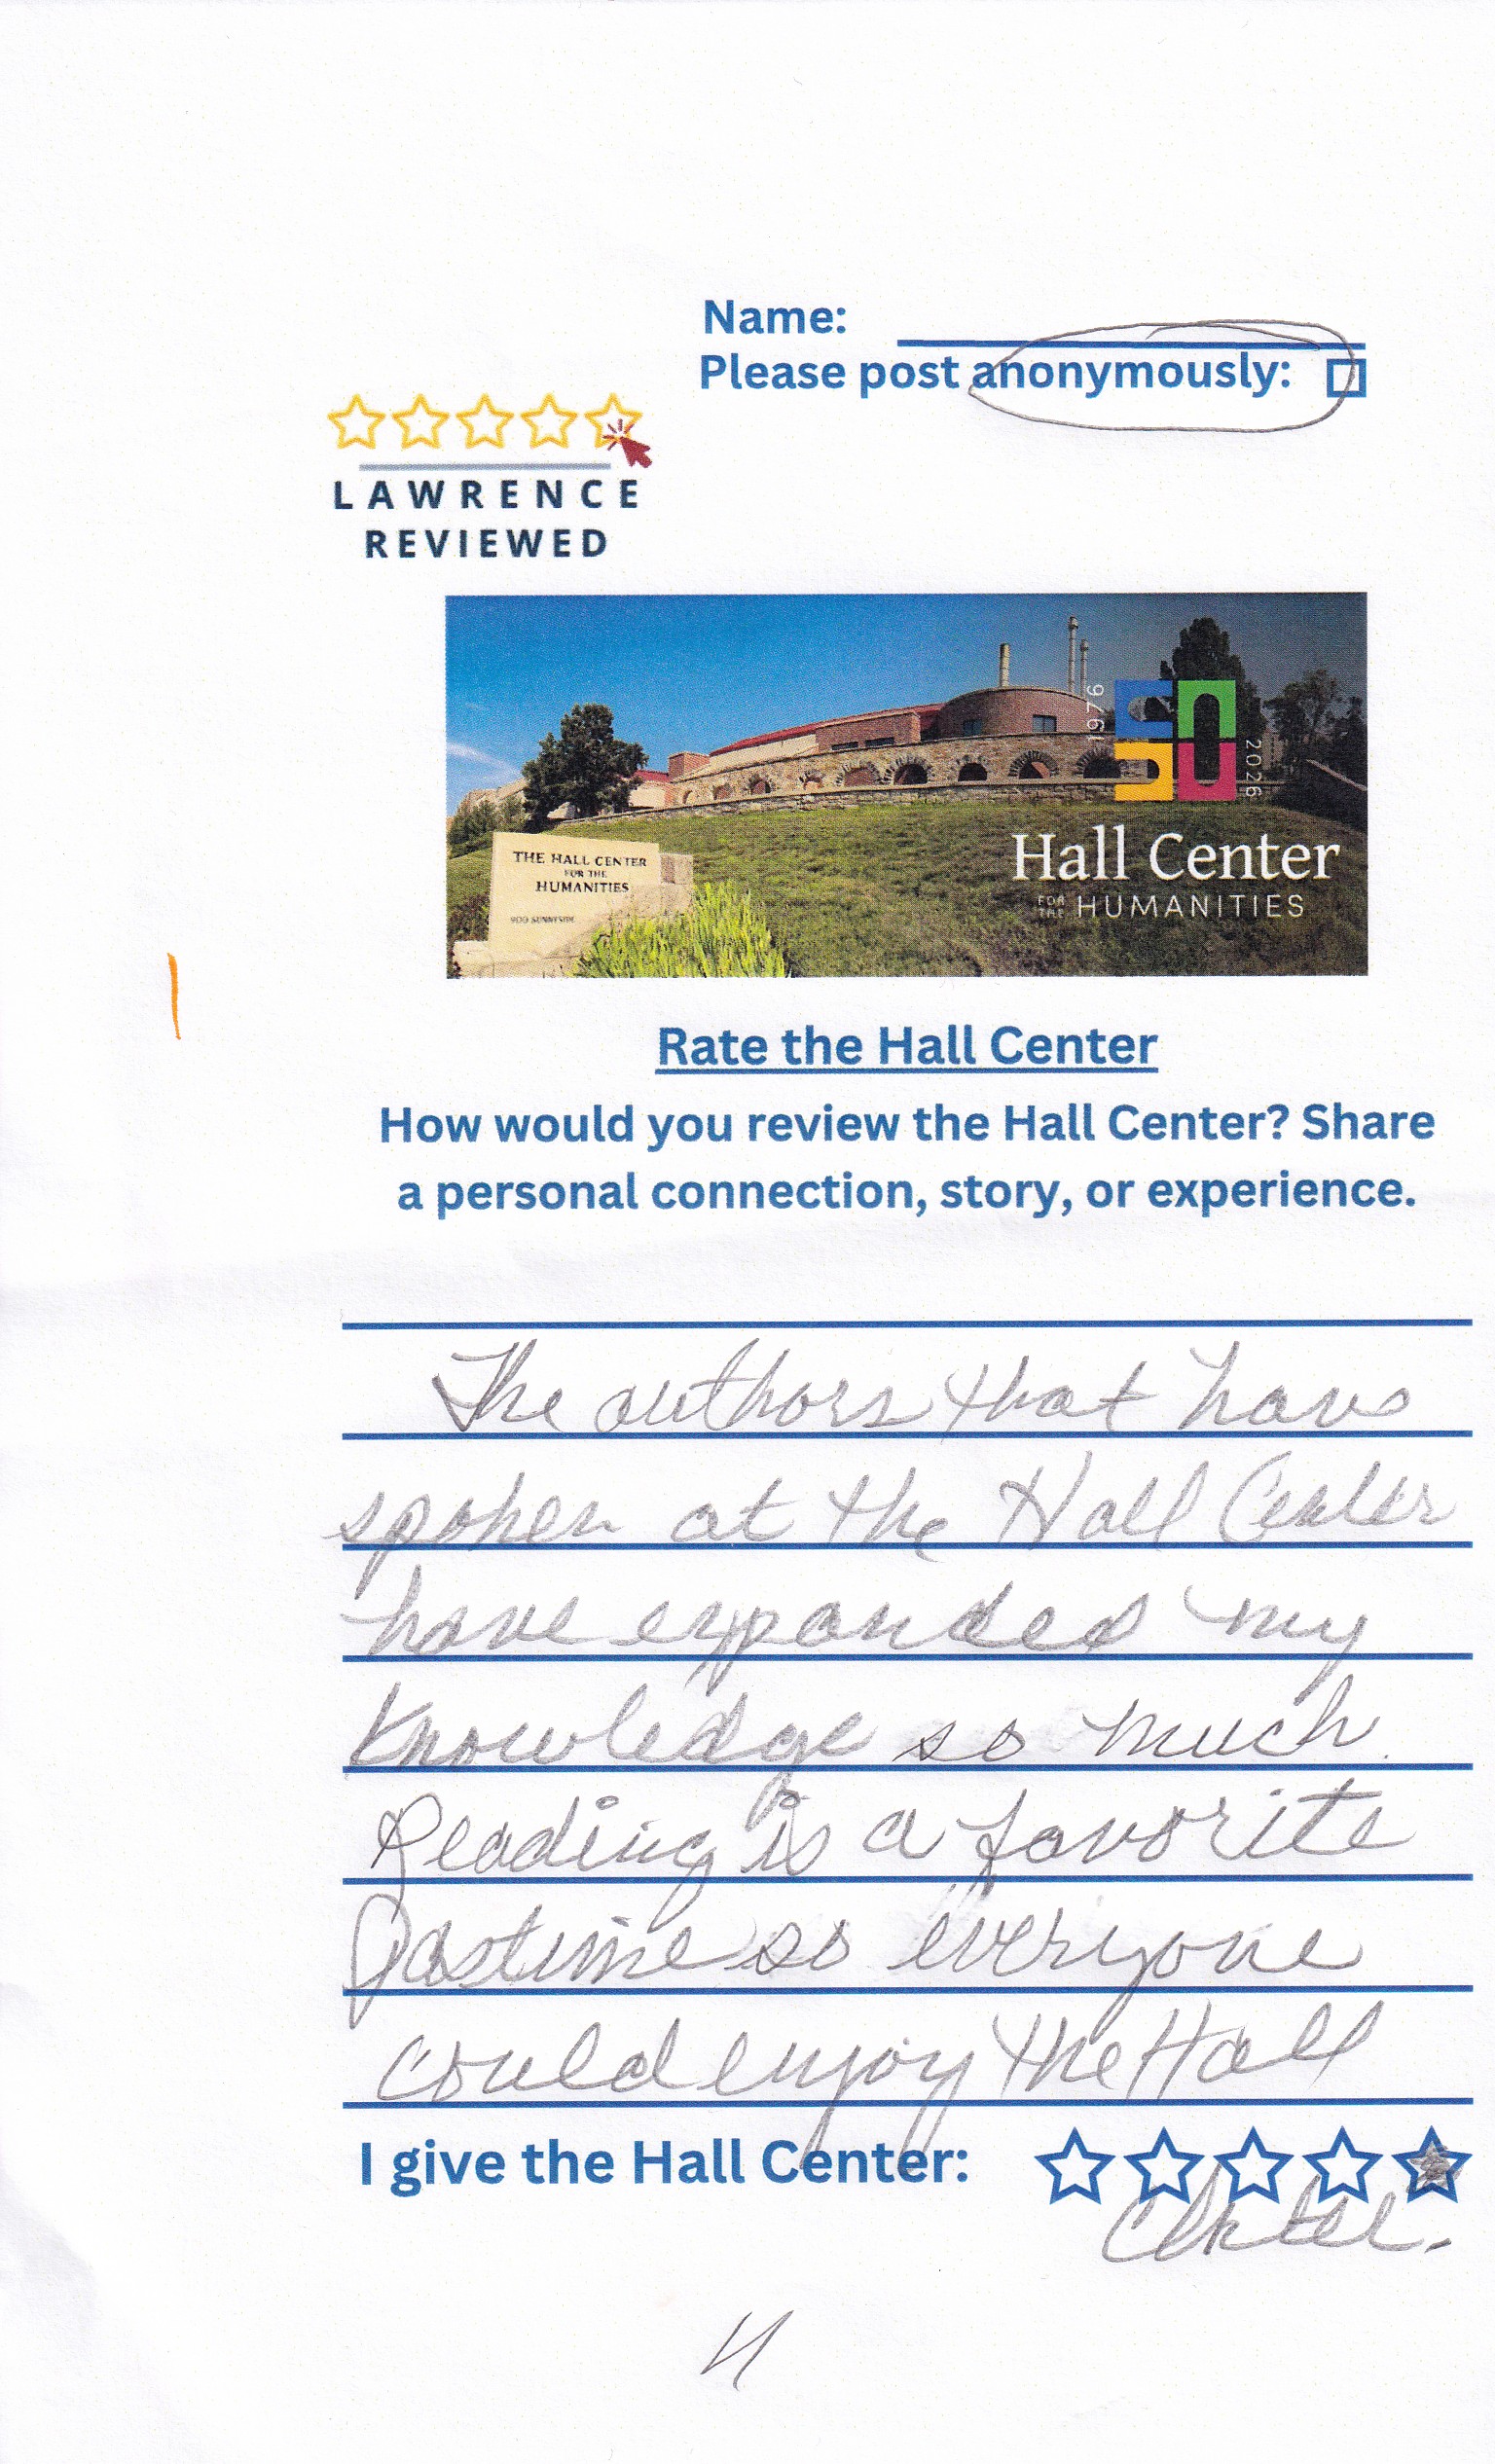 Name:
Please post anonymously:
LAWRENCE
REVIEWED
1976
2026
THE HALL CENTER
FOR THE
HUMANITIES
900 SUNNYSIDE
Hall Center
FOR THE HUMANITIES
Rate the Hall Center
How would you review the Hall Center? Share
a personal connection, story, or experience.
The authors that have
spoken at the Hall Center
have expanded my
knowledge so much.
Reading is a favorite
Pastime so everyone
could enjoy the Hall
I give the Hall Center:
Center.